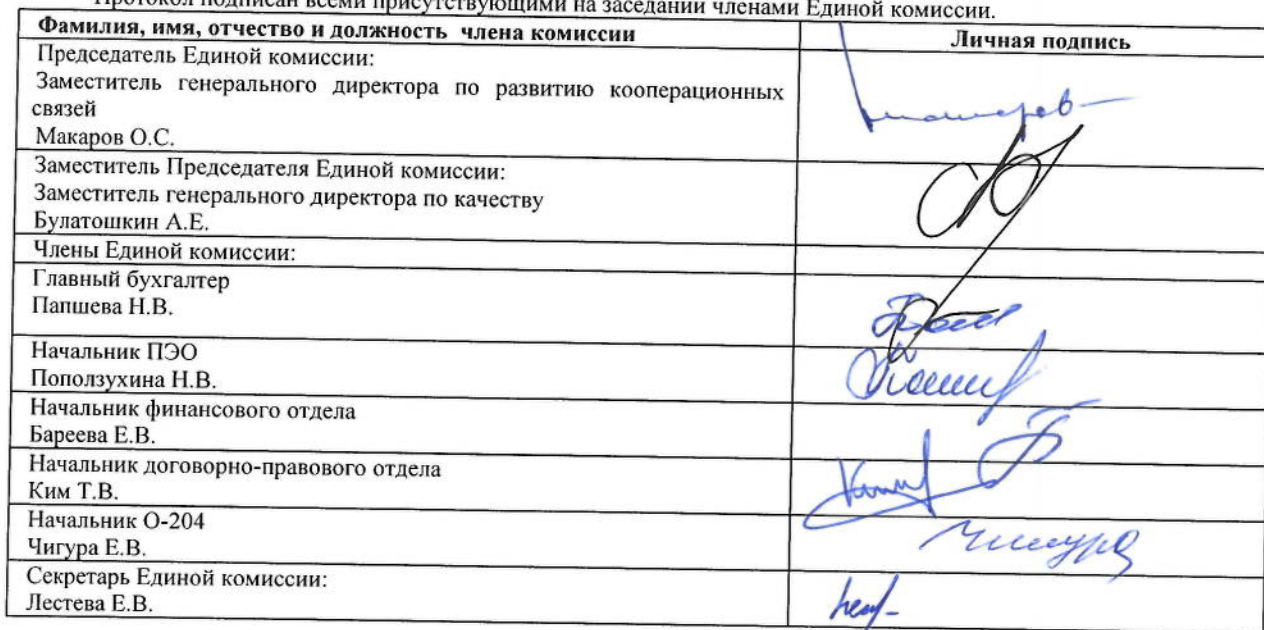 Протокол подписан всеми присутствующими на заседании членами Единой комиссии.
Фамилия, имя, отчество и должность члена комиссии
Личная подпись
Председатель Единой комиссии:
Заместитель генерального директора по развитию кооперационных
связей
Макаров О.С.
Заместитель Председателя Единой комиссии:
Заместитель генерального директора по качеству
Булатошкин А.Е.
Члены Единой комиссии:
Главный бухгалтер
Папшева Н.В.
Начальник ПЭО
Поползухина Н.В.
Начальник финансового отдела
Бареева Е.В.
Начальник договорно-правового отдела
Ким Т.В.
Начальник О-204
Чигура Е.В.
Секретарь Единой комиссии:
Лестева Е.В.